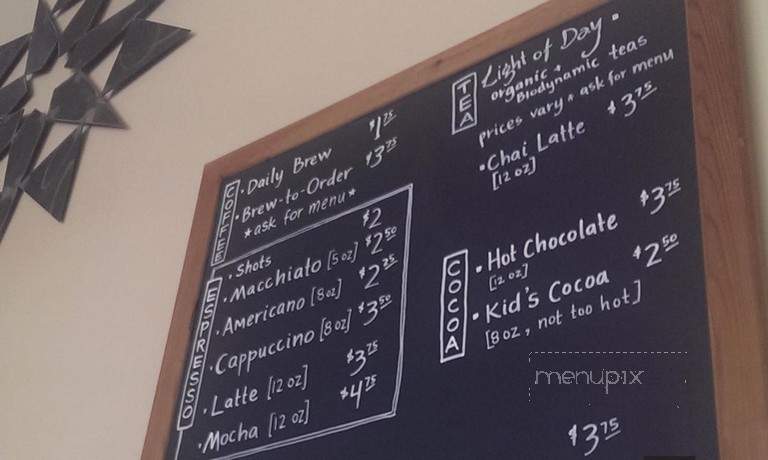 COFFEE
• Daily Brew $1.75
• Brew-to-Order $3.75
*ask for menu*
ESPRESSO
• Shots $2
• Macchiato [5 oz] $2.50
• Americano [8 oz] $2.25
• Cappuccino [8 oz] $3.50
• Latte [12 oz] $3.75
• Mocha [12 oz] $4.25
TEA
Light of Day •
organic +
Biodynamic teas
prices vary * ask for menu
• Chai Latte $3.75
[12 oz]
COCOA
• Hot Chocolate $3.75
[12 oz]
• Kid's Cocoa $2.50
[8 oz, not too hot]
menupix
$3.75